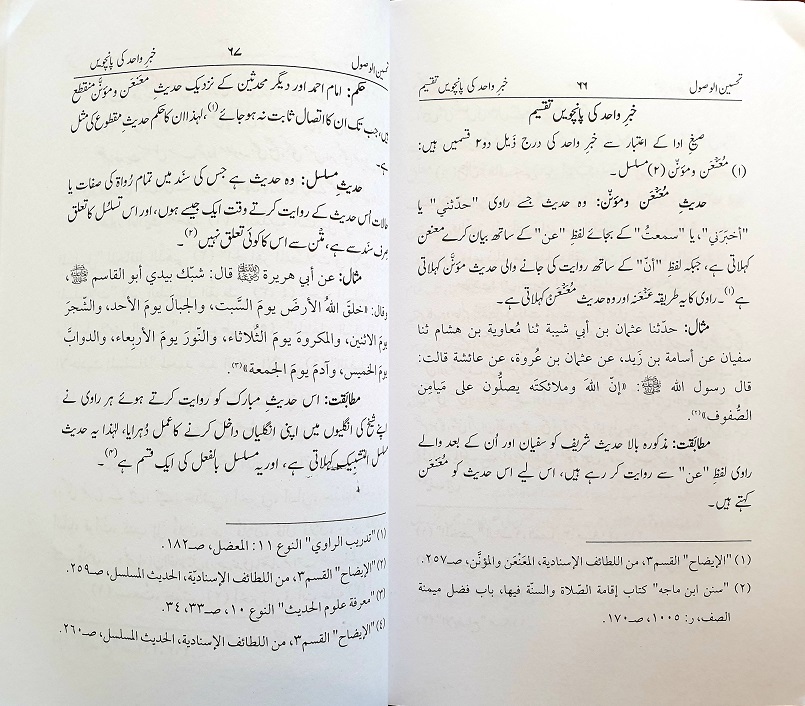 تحسین الوصول ۶۶ خبرِ واحد کی پانچویں تقسیم
خبرِ واحد کی پانچویں تقسیم
صیغِ ادا کے اعتبار سے خبرِ واحد کی درج ذیل دو۲ قسمیں ہیں:
(۱) مُعَنْعَن ومؤنّن (۲) مسلسل۔
حدیثِ مُعَنْعَن ومؤنّن: وہ حدیث جسے راوی "حدّثني" یا
"أخبرَني"، یا "سمعتُ" کے بجائے لفظِ "عن" کے ساتھ بیان کرے معنعن
کہلاتی ہے، جبکہ لفظِ "أنّ" کے ساتھ روایت کی جانے والی حدیث مؤنَّن کہلاتی
ہے(۱)۔ راوی کا یہ طریقہ عَنْعَنَہ اور وہ حدیث مُعَنْعَن کہلاتی ہے۔
مثال: حدّثنا عثمان بن أبي شيبة ثنا مُعاوية بن هشام ثنا
سفيان عن أسامة بن زَيد، عن عثمان بن عُروة، عن عائشة قالت:
قال رسول الله ﷺ: «إنّ اللهَ وملائكتَه يصلُّون على مَيامِن
الصُّفوف»(۲).
مطابقت: مذکورہ بالا حدیث شریف کو سفیان اور اُن کے بعد والے
راوی لفظِ "عن" سے روایت کر رہے ہیں، اس لیے اس حدیث کو مُعَنْعَن
کہتے ہیں۔
(۱) "الإيضاح" القسم۳، من اللطائف الإسنادية، المعَنْعَن والمؤنَّن، صـ۲۵۷.
(۲) "سنن ابن ماجه" كتاب إقامة الصّلاة والسنّة فيها، باب فضل ميمنة
الصف، ر: ۱۰۰۵، صـ۱۷۰.
تحسین الوصول ۶۷ خبرِ واحد کی پانچویں
حکم: امام احمد اور دیگر محدثین کے نزدیک حدیثِ مُعَنْعَن ومؤنَّن منقطع
ہیں، جب تک ان کا اتصال ثابت نہ ہو جائے(۱)، لہذا ان کا حکم حدیثِ مقطوع کی مثل
ہے۔
حدیثِ مسلسل: وہ حدیث ہے جس کی سنَد میں تمام رُواة کی صفات یا
حالات اُس حدیث کے روایت کرتے وقت ایک جیسے ہوں، اور اس تسلسُل کا تعلق
صرف سنَد سے ہے، متْن سے اس کا کوئی تعلق نہیں(۲)۔
مثال: عن أبي هريرة قال: شبّك بيدي أبو القاسم ﷺ،
وقال: «خلقَ اللهُ الأرضَ يومَ السَّبت، والجبالَ يومَ الأحد، والشّجرَ
يومَ الاثنين، والمكروهَ يومَ الثُّلاثاء، والنّورَ يومَ الأربعاء، والدوابَّ
يومَ الخميس، وآدمَ يومَ الجمعة»(۳).
مطابقت: اس حدیثِ مبارک کو روایت کرتے ہوئے ہر راوی نے
اپنے شیخ کی انگلیوں میں اپنی انگلیاں داخل کرنے کا عمل دُہرایا، لہٰذا یہ حدیث
مسلسل بالتشبیک کہلاتی ہے، اور یہ مسلسل بالفعل کی ایک قسم ہے(۴)۔
(۱) "تدريب الراوي" النوع ۱۱: المعضل، صـ۱۸۲.
(۲) "الإيضاح" القسم۳، من اللطائف الإسناديّة، الحديث المسلسل، صـ۲۵۹.
(۳) "معرفة علوم الحديث" النوع ۱۰، صـ۳۳، ۳٤.
(٤) "الإيضاح" القسم۳، من اللطائف الإسنادية، الحديث المسلسل، صـ۲٦۰.